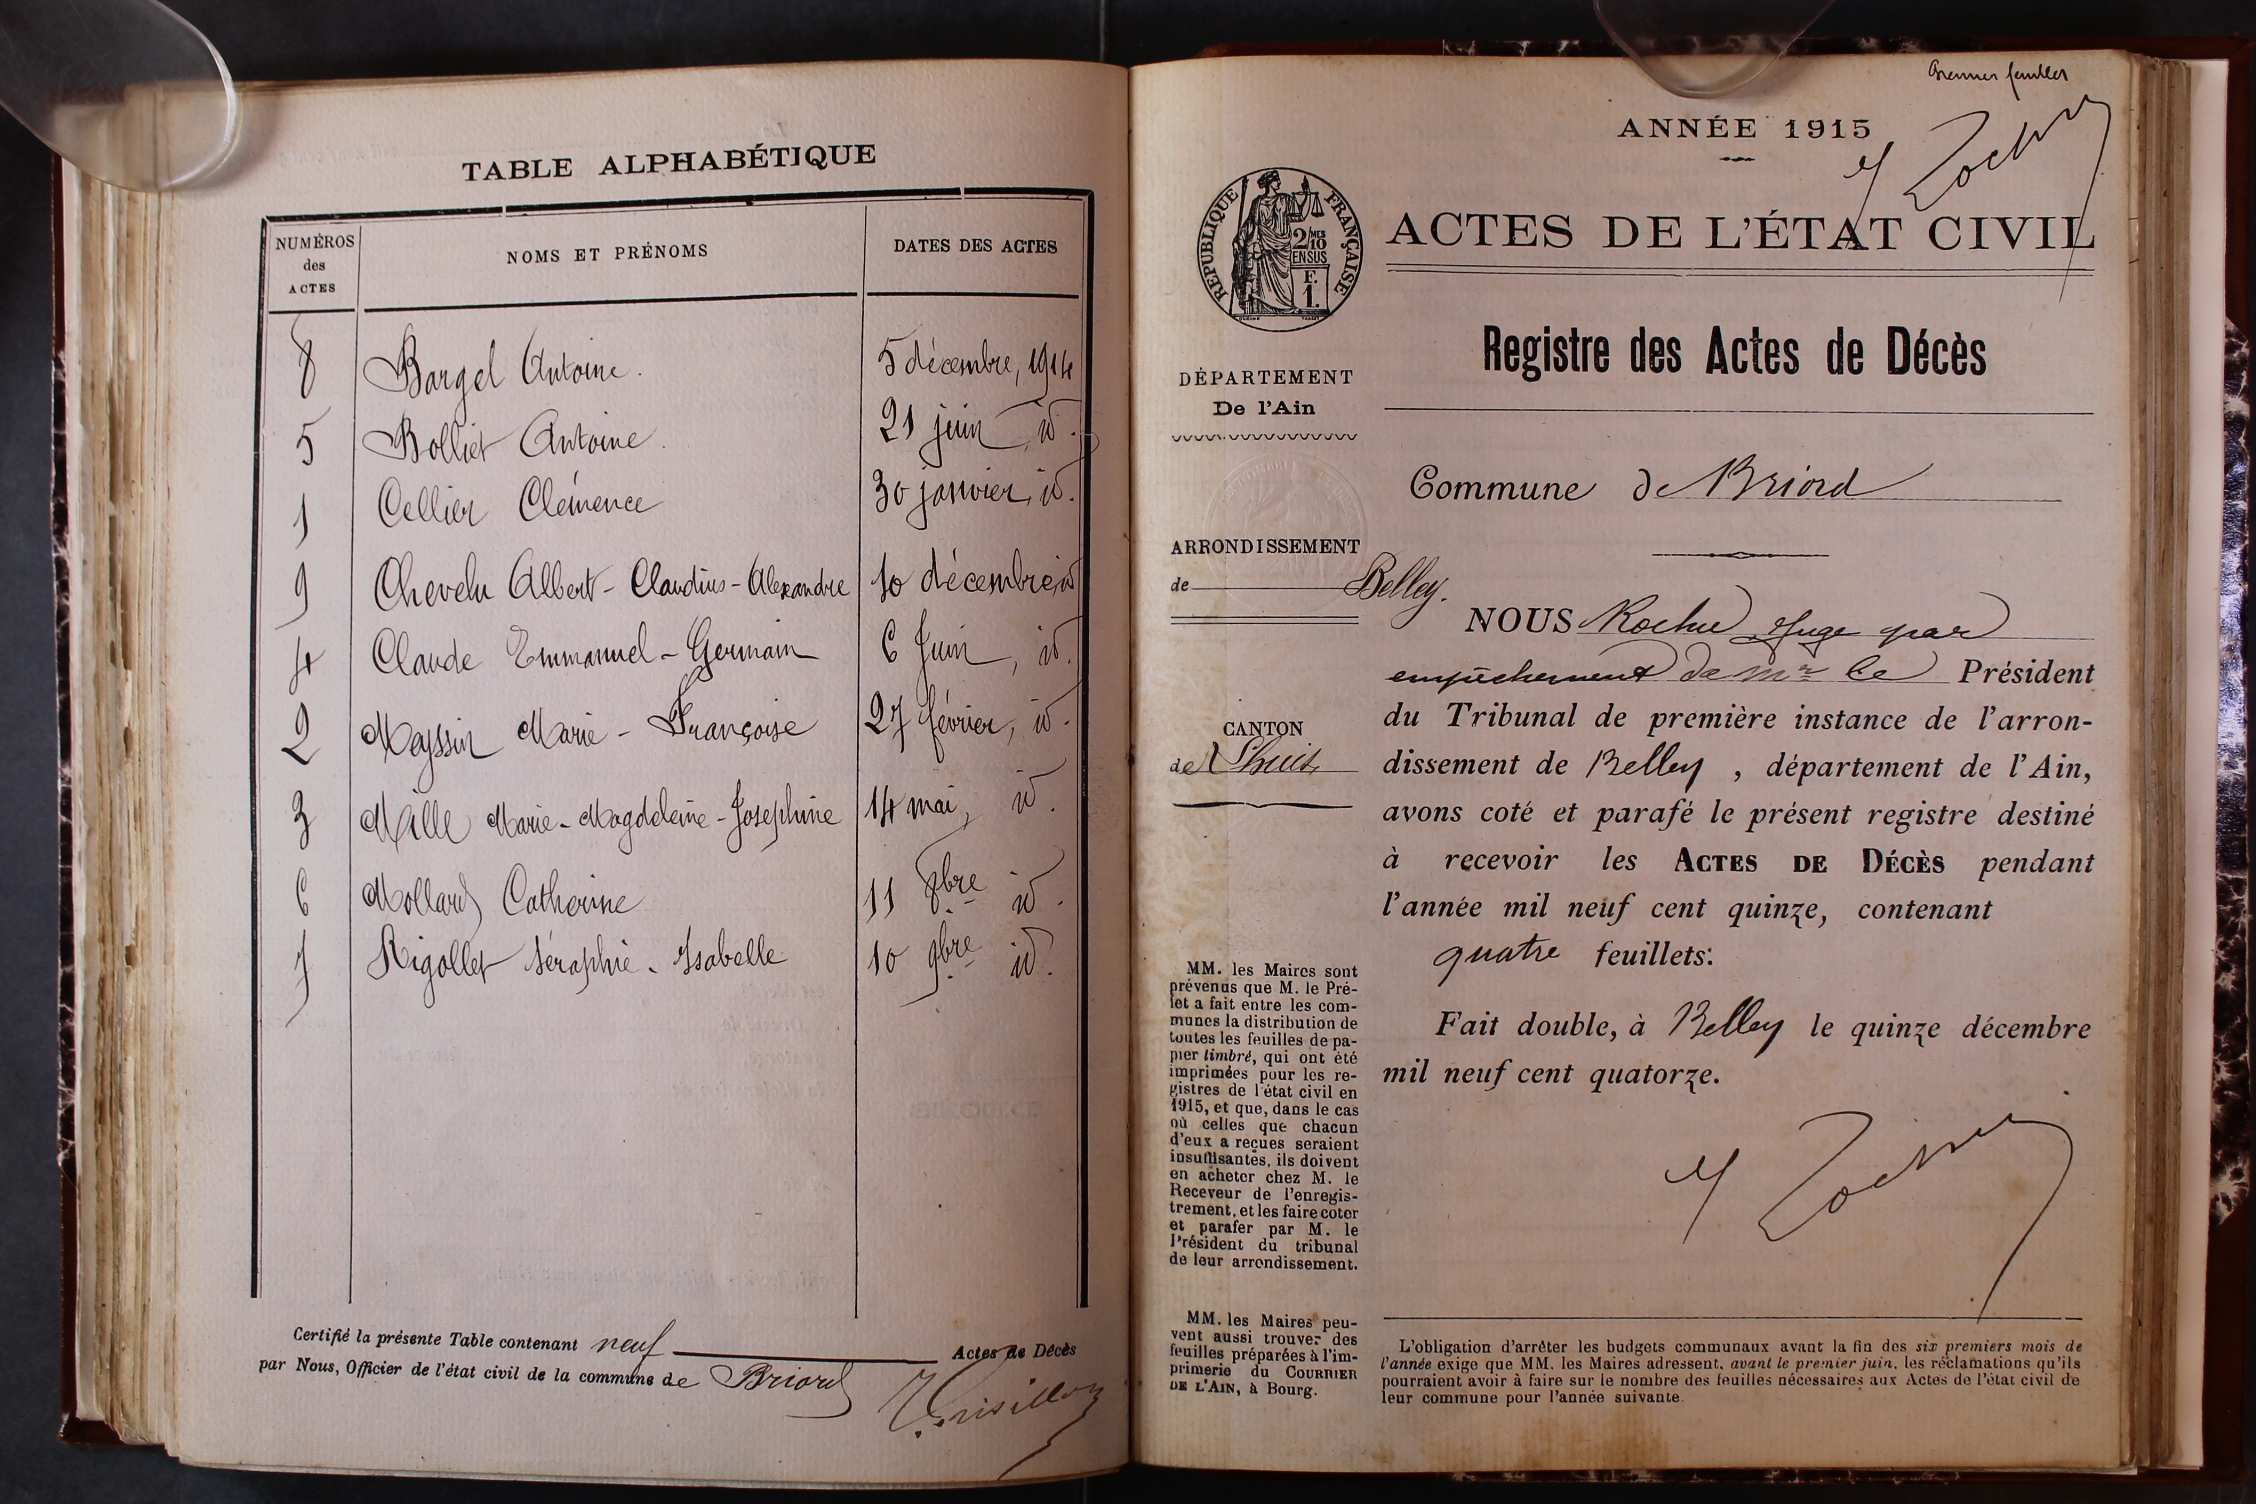 TABLE ALPHABÉTIQUE
NUMÉROS des ACTES
NOMS ET PRÉNOMS
DATES DES ACTES
8 Bargel Antoine. 5 décembre, 1914
5 Bolliet Antoine. 21 juin, id.
1 Cellier Clémence 30 janvier, id.
9 Chevelu Albert-Claudius-Alexandre 10 décembre, id
4 Claude Emmanuel-Germain 6 Juin, id.
2 Meyssin Marie-Françoise 27 février, id.
3 Mille Marie-Magdeleine-Joséphine 14 mai, id.
6 Mollard Catherine 11 8bre id.
7 Rigollet Séraphie-Isabelle 10 9bre id.
Certifié la présente Table contenant neuf Actes de Décès
par Nous, Officier de l'état civil de la commune de Briord
Premier feuillet
ANNÉE 1915
RÉPUBLIQUE FRANÇAISE
2/10 MES
EN SUS
F.
1.
ACTES DE L'ÉTAT CIVIL
Registre des Actes de Décès
DÉPARTEMENT
De l'Ain
Commune de Briord
ARRONDISSEMENT
de Belley.
CANTON
de Lhuis
NOUS Rochu Juge par
empêchement de Mr le Président
du Tribunal de première instance de l'arron-
dissement de Belley, département de l'Ain,
avons coté et parafé le présent registre destiné
à recevoir les ACTES DE DÉCÈS pendant
l'année mil neuf cent quinze, contenant
quatre feuillets.
Fait double, à Belley le quinze décembre
mil neuf cent quatorze.
MM. les Maires sont
prévenus que M. le Pré-
fet a fait entre les com-
munes la distribution de
toutes les feuilles de pa-
pier timbré, qui ont été
imprimées pour les re-
gistres de l'état civil en
1915, et que, dans le cas
où celles que chacun
d'eux a reçues seraient
insuffisantes, ils doivent
en acheter chez M. le
Receveur de l'enregis-
trement, et les faire coter
et parafer par M. le
Président du tribunal
de leur arrondissement.
MM. les Maires peu-
vent aussi trouver des
feuilles préparées à l'im-
primerie du COURRIER
DE L'AIN, à Bourg.
L'obligation d'arrêter les budgets communaux avant la fin des six premiers mois de
l'année exige que MM. les Maires adressent, avant le premier juin, les réclamations qu'ils
pourraient avoir à faire sur le nombre des feuilles nécessaires aux Actes de l'état civil de
leur commune pour l'année suivante.